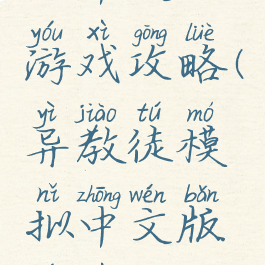 yóu xì gōng lüè
游戏攻略(
yì jiào tú mó
异教徒模
nǐ zhōng wén bǎn
拟中文版